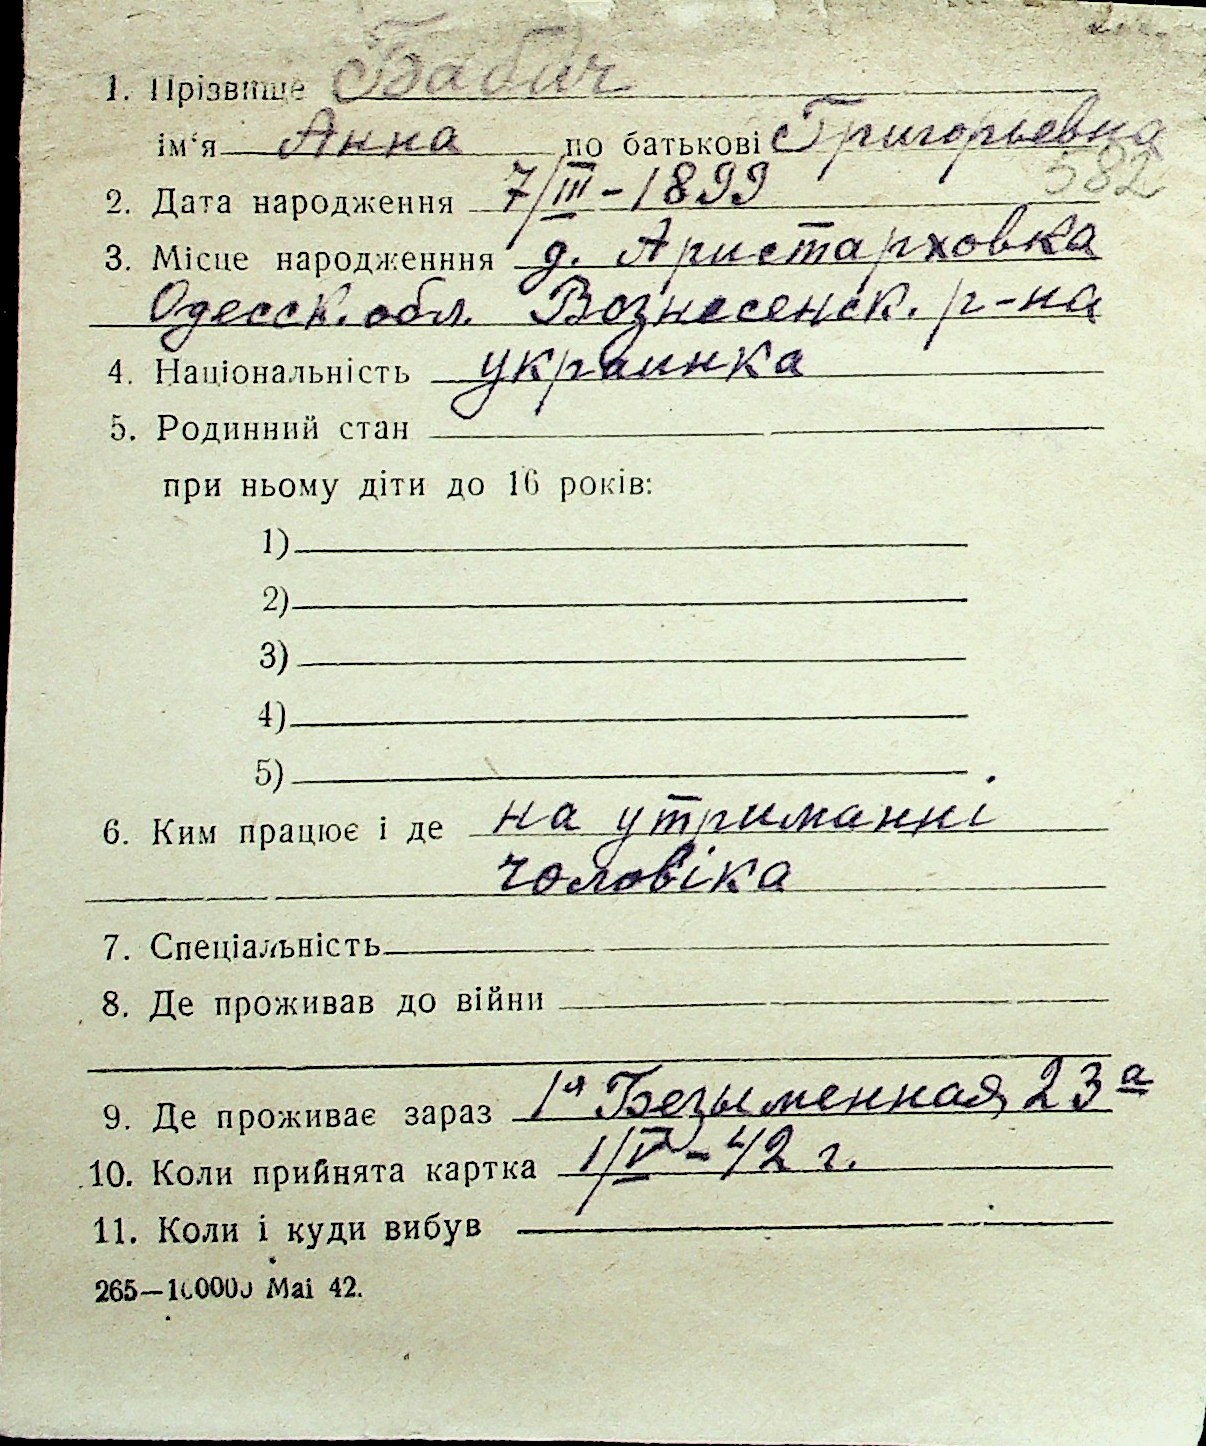 1. Прізвище Бабич
ім'я Анна по батькові Григорьевна
582
2. Дата народження 7/III-1899
3. Місце народженння д. Аристарховка
Одесск. обл. Вознесенск. р-на
4. Національність украинка
5. Родинний стан
при ньому діти до 16 років:
1)
2)
3)
4)
5)
6. Ким працює і де на утриманні
чоловіка
7. Спеціальність
8. Де проживав до війни
9. Де проживає зараз 1я Безыменная, 23а
10. Коли прийнята картка 1/V-42 г.
11. Коли і куди вибув
265—100000 Mai 42.